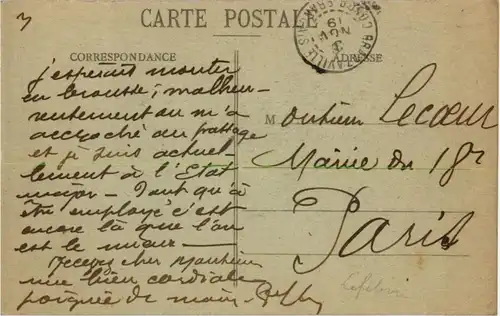 3
CARTE POSTALE
CORRESPONDANCE
ADRESSE
j'espérais monter
en brousse; malheu-
reusement on m'a
accroché au passage
et je suis actuel-
lement à l'Etat
major - Tant qu'à
être employé c'est
encore là que l'on
est le mieux -
Recevez cher Monsieur
une bien cordiale
poignée de main.
Monsieur Lecoeur
Mairie du 18e
Paris